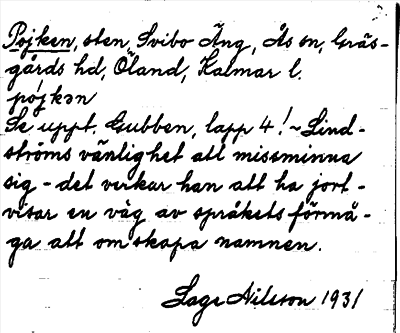 Pojken, sten, Svibo Äng, Ås sn, Gräs-
gårds hd, Öland, Kalmar l.
pójkən
Se uppt. Gubben, lapp 4! ~ Lind-
ströms vänlighet att missminna
sig - det verkar han att ha jort -
visar en väg av språkets förmå-
ga att omskapa namnen.
Lage Nilsson 1931